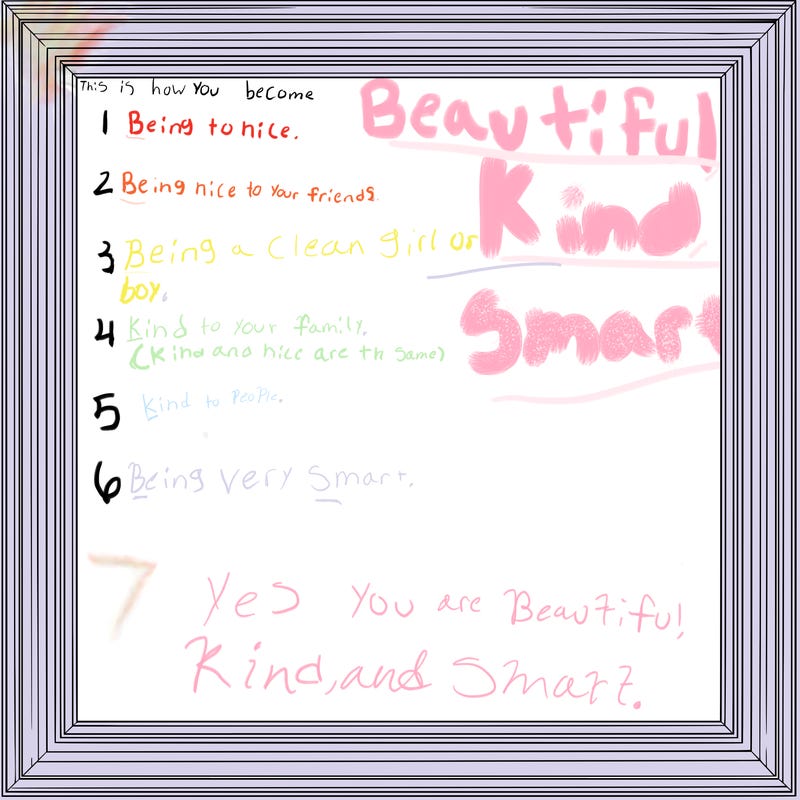 This is how you become
Beautiful
Kind
Smart
1 Being to nice.
2 Being nice to your friends.
3 Being a Clean girl or
boy.
4 Kind to your family.
(Kind and nice are th same)
5 Kind to People.
6 Being very Smart.
7 Yes You are Beautiful
Kind, and Smart.